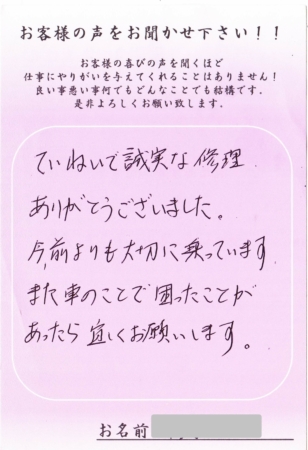 お客様の声をお聞かせ下さい！！
お客様の喜びの声を聞くほど
仕事にやりがいを与えてくれることはありません！
良い事悪い事何でもどんなことでも結構です．
是非よろしくお願い致します．
ていねいで誠実な修理
ありがとうございました。
今、前よりも大切に乗っています
また車のことで困ったことが
あったら宜しくお願いします。
お名前